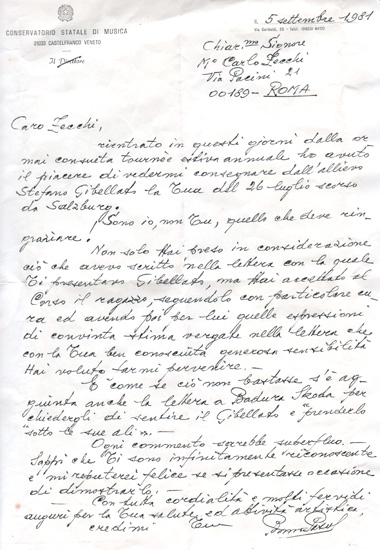 CONSERVATORIO STATALE DI MUSICA
31033 CASTELFRANCO VENETO
Il Direttore
5 settembre 1981
Chiar.mo Signore
Mº Carlo Zecchi
Via Pacini 21
00189 - ROMA
Caro Zecchi,
rientrato in questi giorni dalla or
mai consueta tournée estiva annuale ho avuto
il piacere di vedermi consegnare dall'allievo
Stefano Gibellato la Tua del 26 luglio scorso
da Salzburg.
Sono io, non Tu, quello che deve rin,
graziare.
Non solo Hai preso in considerazione
ciò che avevo scritto nella lettera con la quale
Ti presentavo Gibellato, ma Hai accettato al
Corso il ragazzo, seguendolo con particolare cu,
ra ed avendo poi per lui quelle espressioni
di convinta stima vergate nella lettera che
con la Tua ben conosciuta generosa sensibilità
Hai voluto farmi pervenire. -
E come se ciò non bastasse s'è ag,
giunta anche la lettera a Badura Skoda per
chiedergli di sentire il Gibellato e prenderlo
"sotto le sue ali". -
Ogni commento sarebbe superfluo. -
Sappi che Ti sono infinitamente riconoscente
e mi reputerei felice se si presentasse occasione
di dimostrarlo. -
Con tutta cordialità e molti fervidi
auguri per la Tua salute, ed attività artistica,
credimi Tuo